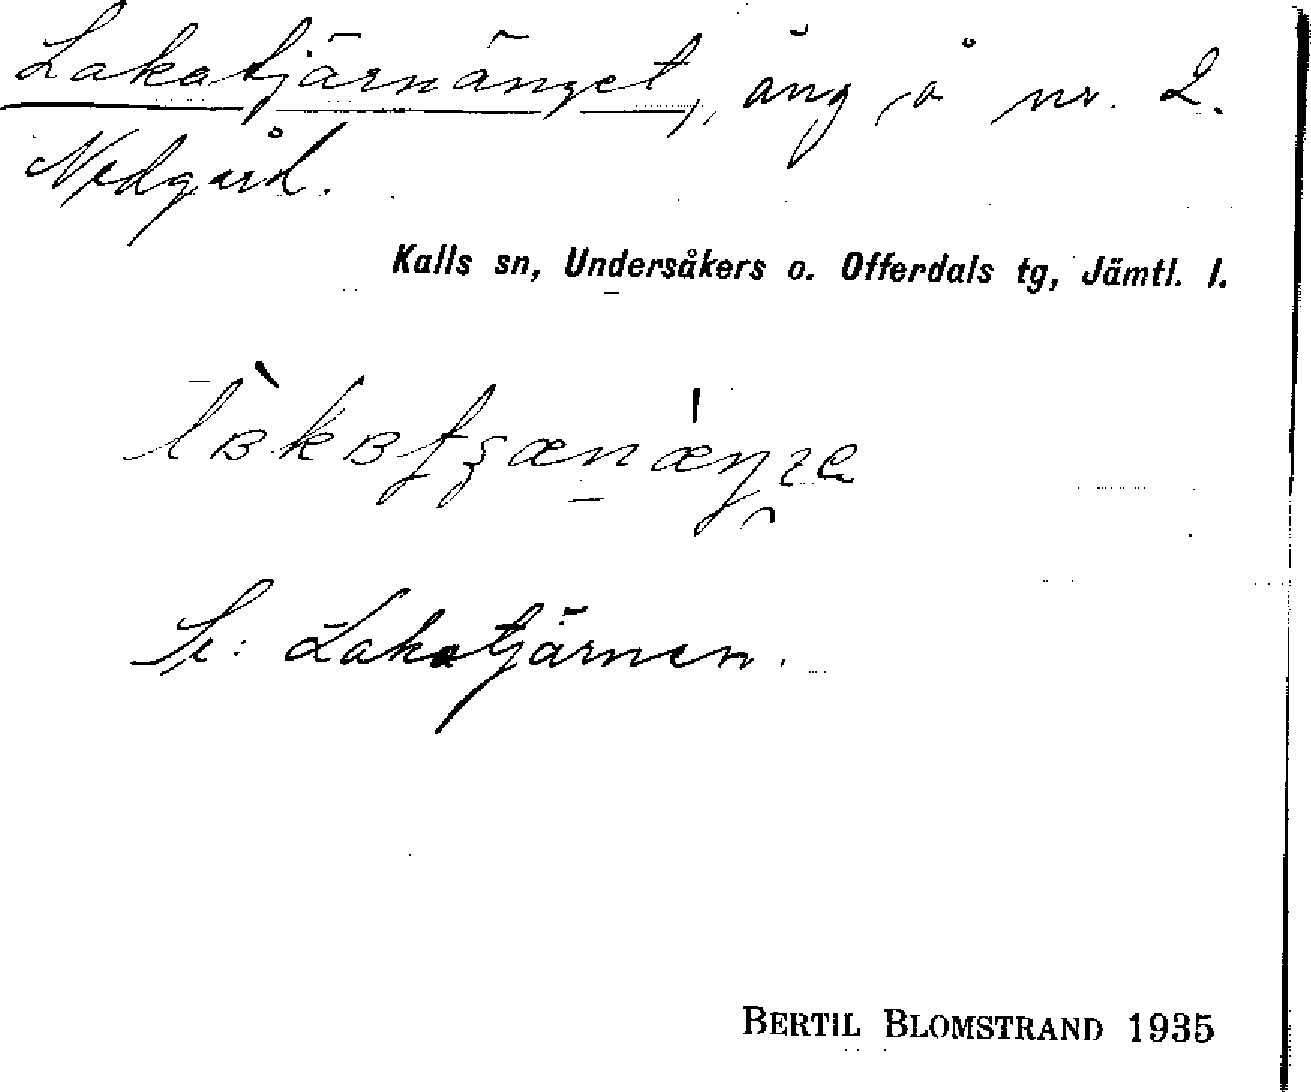 Lakatjärnänget, äng å nr. 2.
Nedgård.
Kalls sn, Undersåkers o. Offerdals tg, Jämtl. l.
Se: Lakatjärnen.
BERTIL BLOMSTRAND 1935